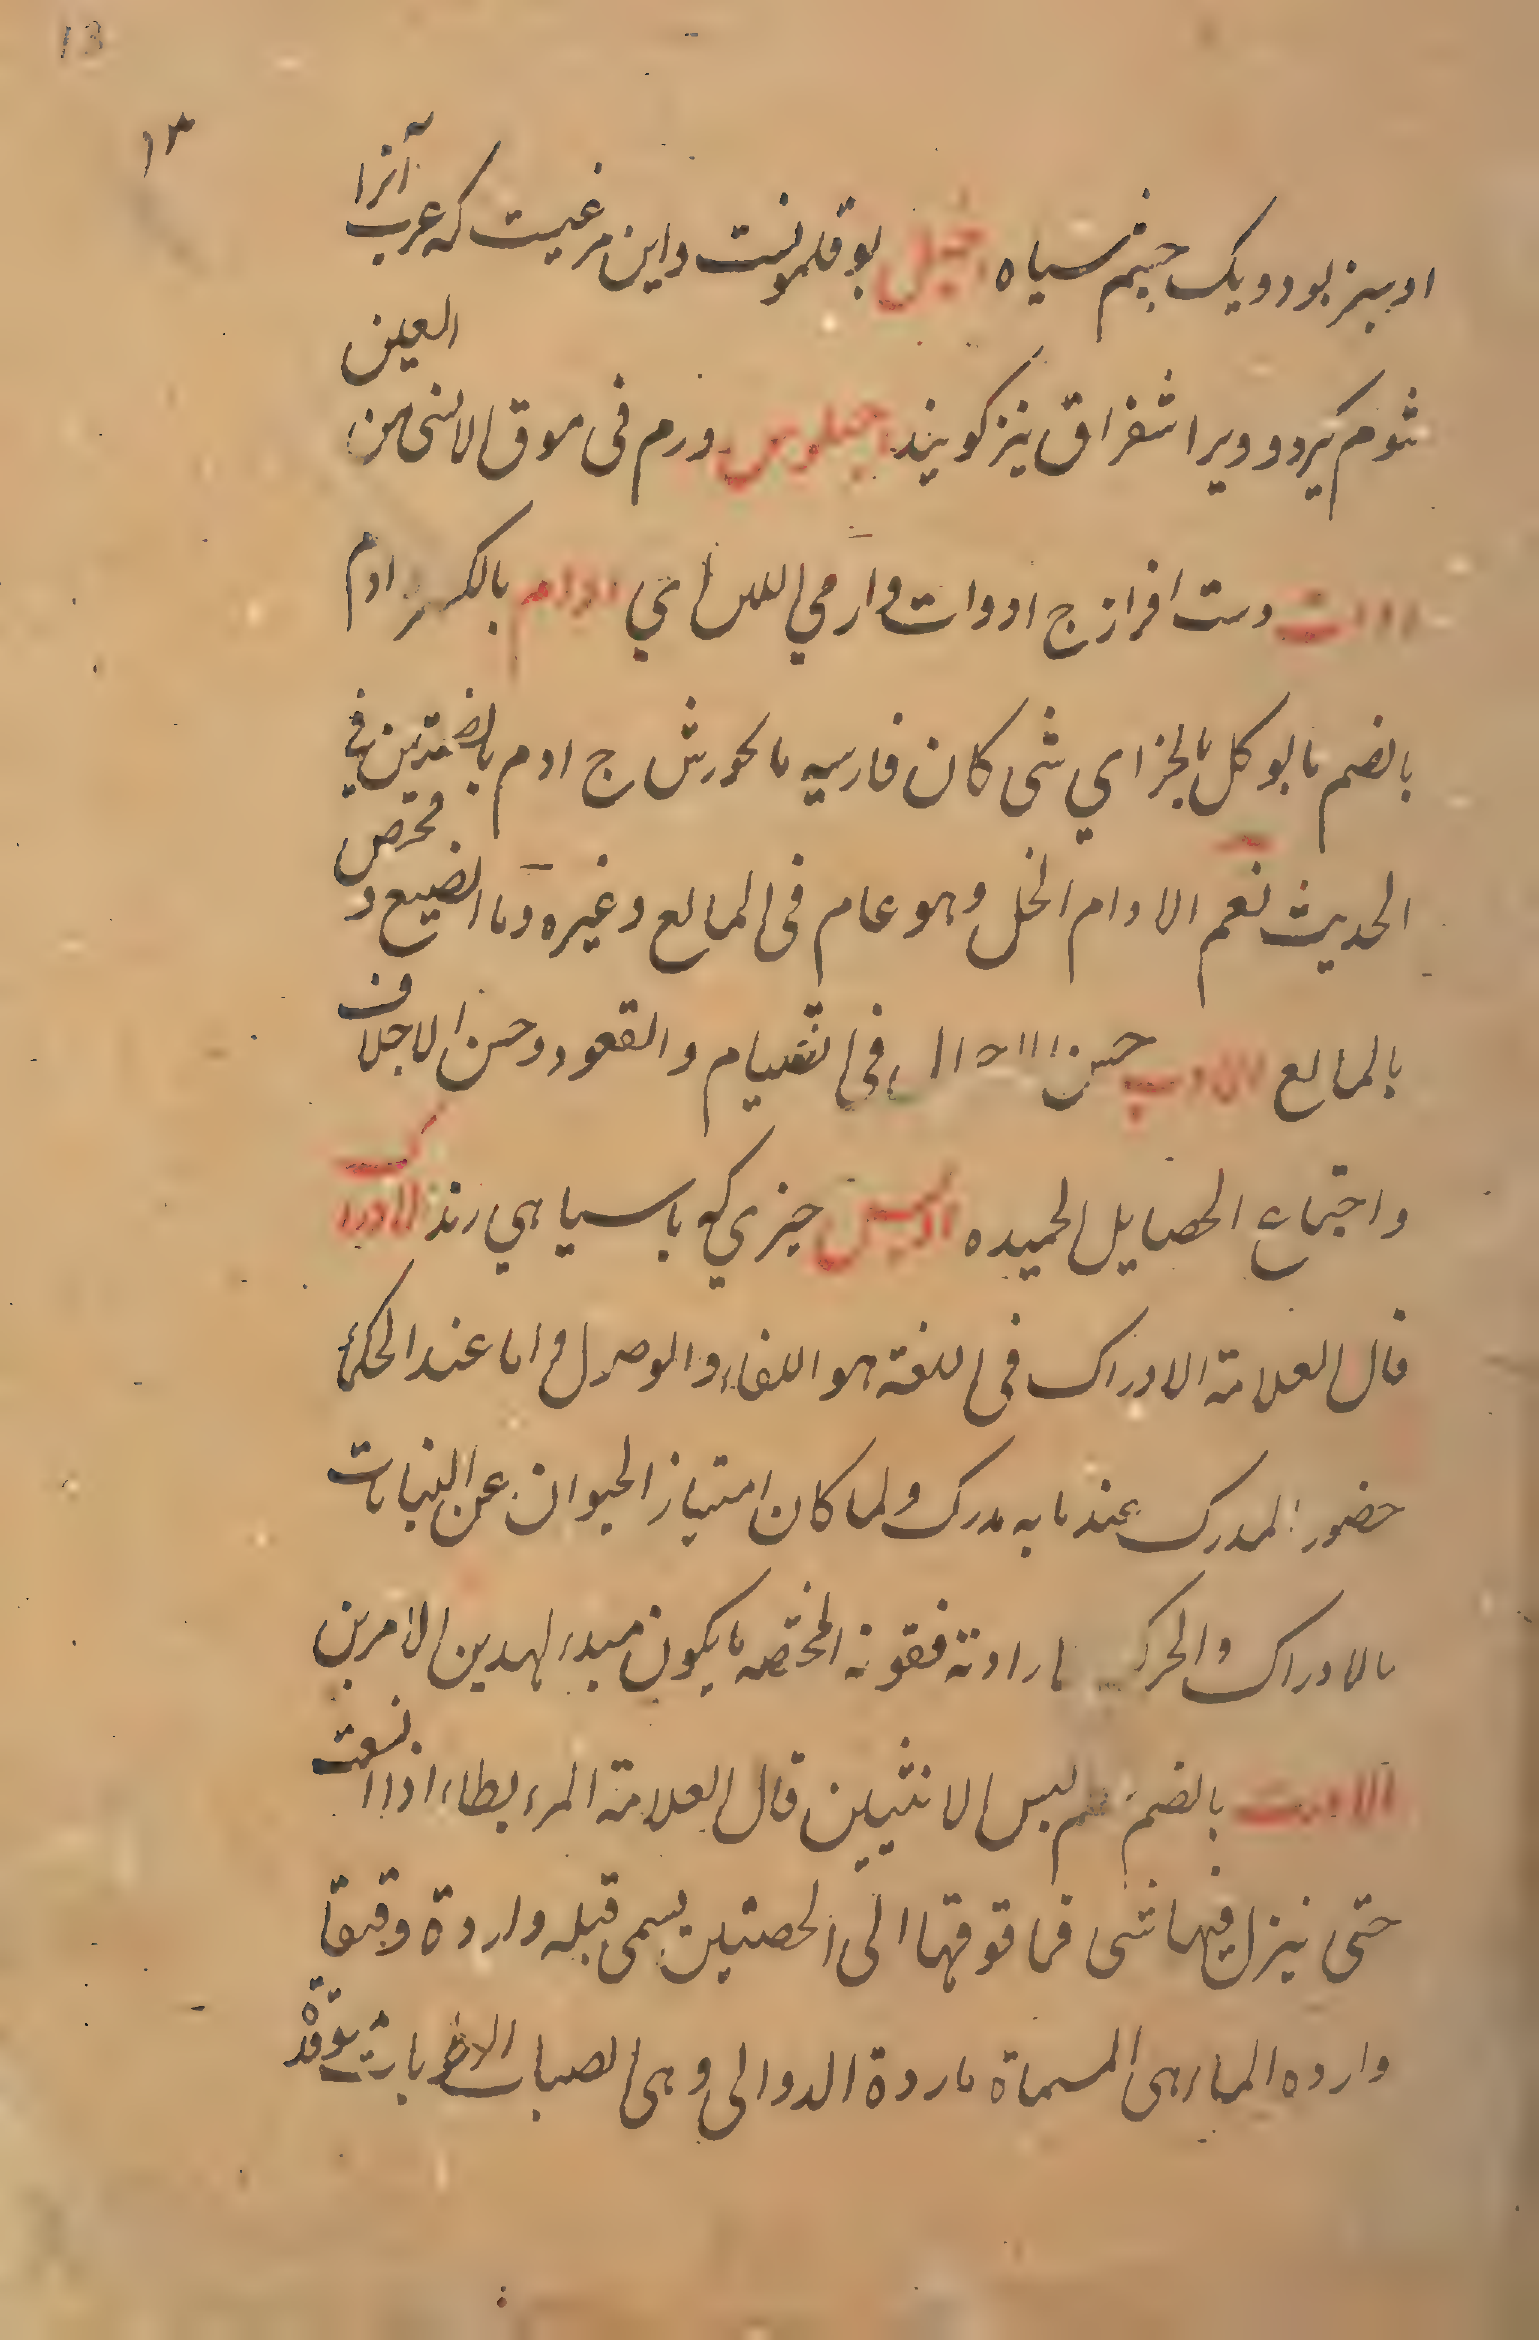 13
١٣
او سبز بود و یک چشم سیاه اخیل بوقلمونست و این مرغیست که عرب آنرا
شوم گیرد و ویرا شقراق نیز گویند ورم فی موق الانسی من العین
ادات دست افراز ج ادوات ای ادام بالکسر ادم
بالضم ما یوکل بالخبز ای شی کان فارسیه نانخورش ج ادم بالضمتین فی
الحدیث نعم الادام الخل وهو عام فی المایع و غیره و ما الصبیغ و مختص
بالمایع الادب حسن فی القیام والقعود وحسن الاخلاق
واجتماع الخصایل الحمیده چیزی که با سیاهی زند الادراک
قال العلامة الادراک فی اللغة هو اللقاء والوصول و اما عند الحکماء
حضور المدرک عند ما به یدرک ولما کان امتیاز الحیوان عن النباتات
بالادراک والحرکه بارادته فقوته المختصه ما یکون مبدء لهدین الامرین
الادرة بالضم لیس الانثیین قال العلامة المر بطاء اذا اتسعت
حتی ینزل فیها شی فما فوقها الی الخصیتین یسمی قیله وادرة وفتقا
وادره الماء هی المسماة بادرة الدوالی وهی انصباب